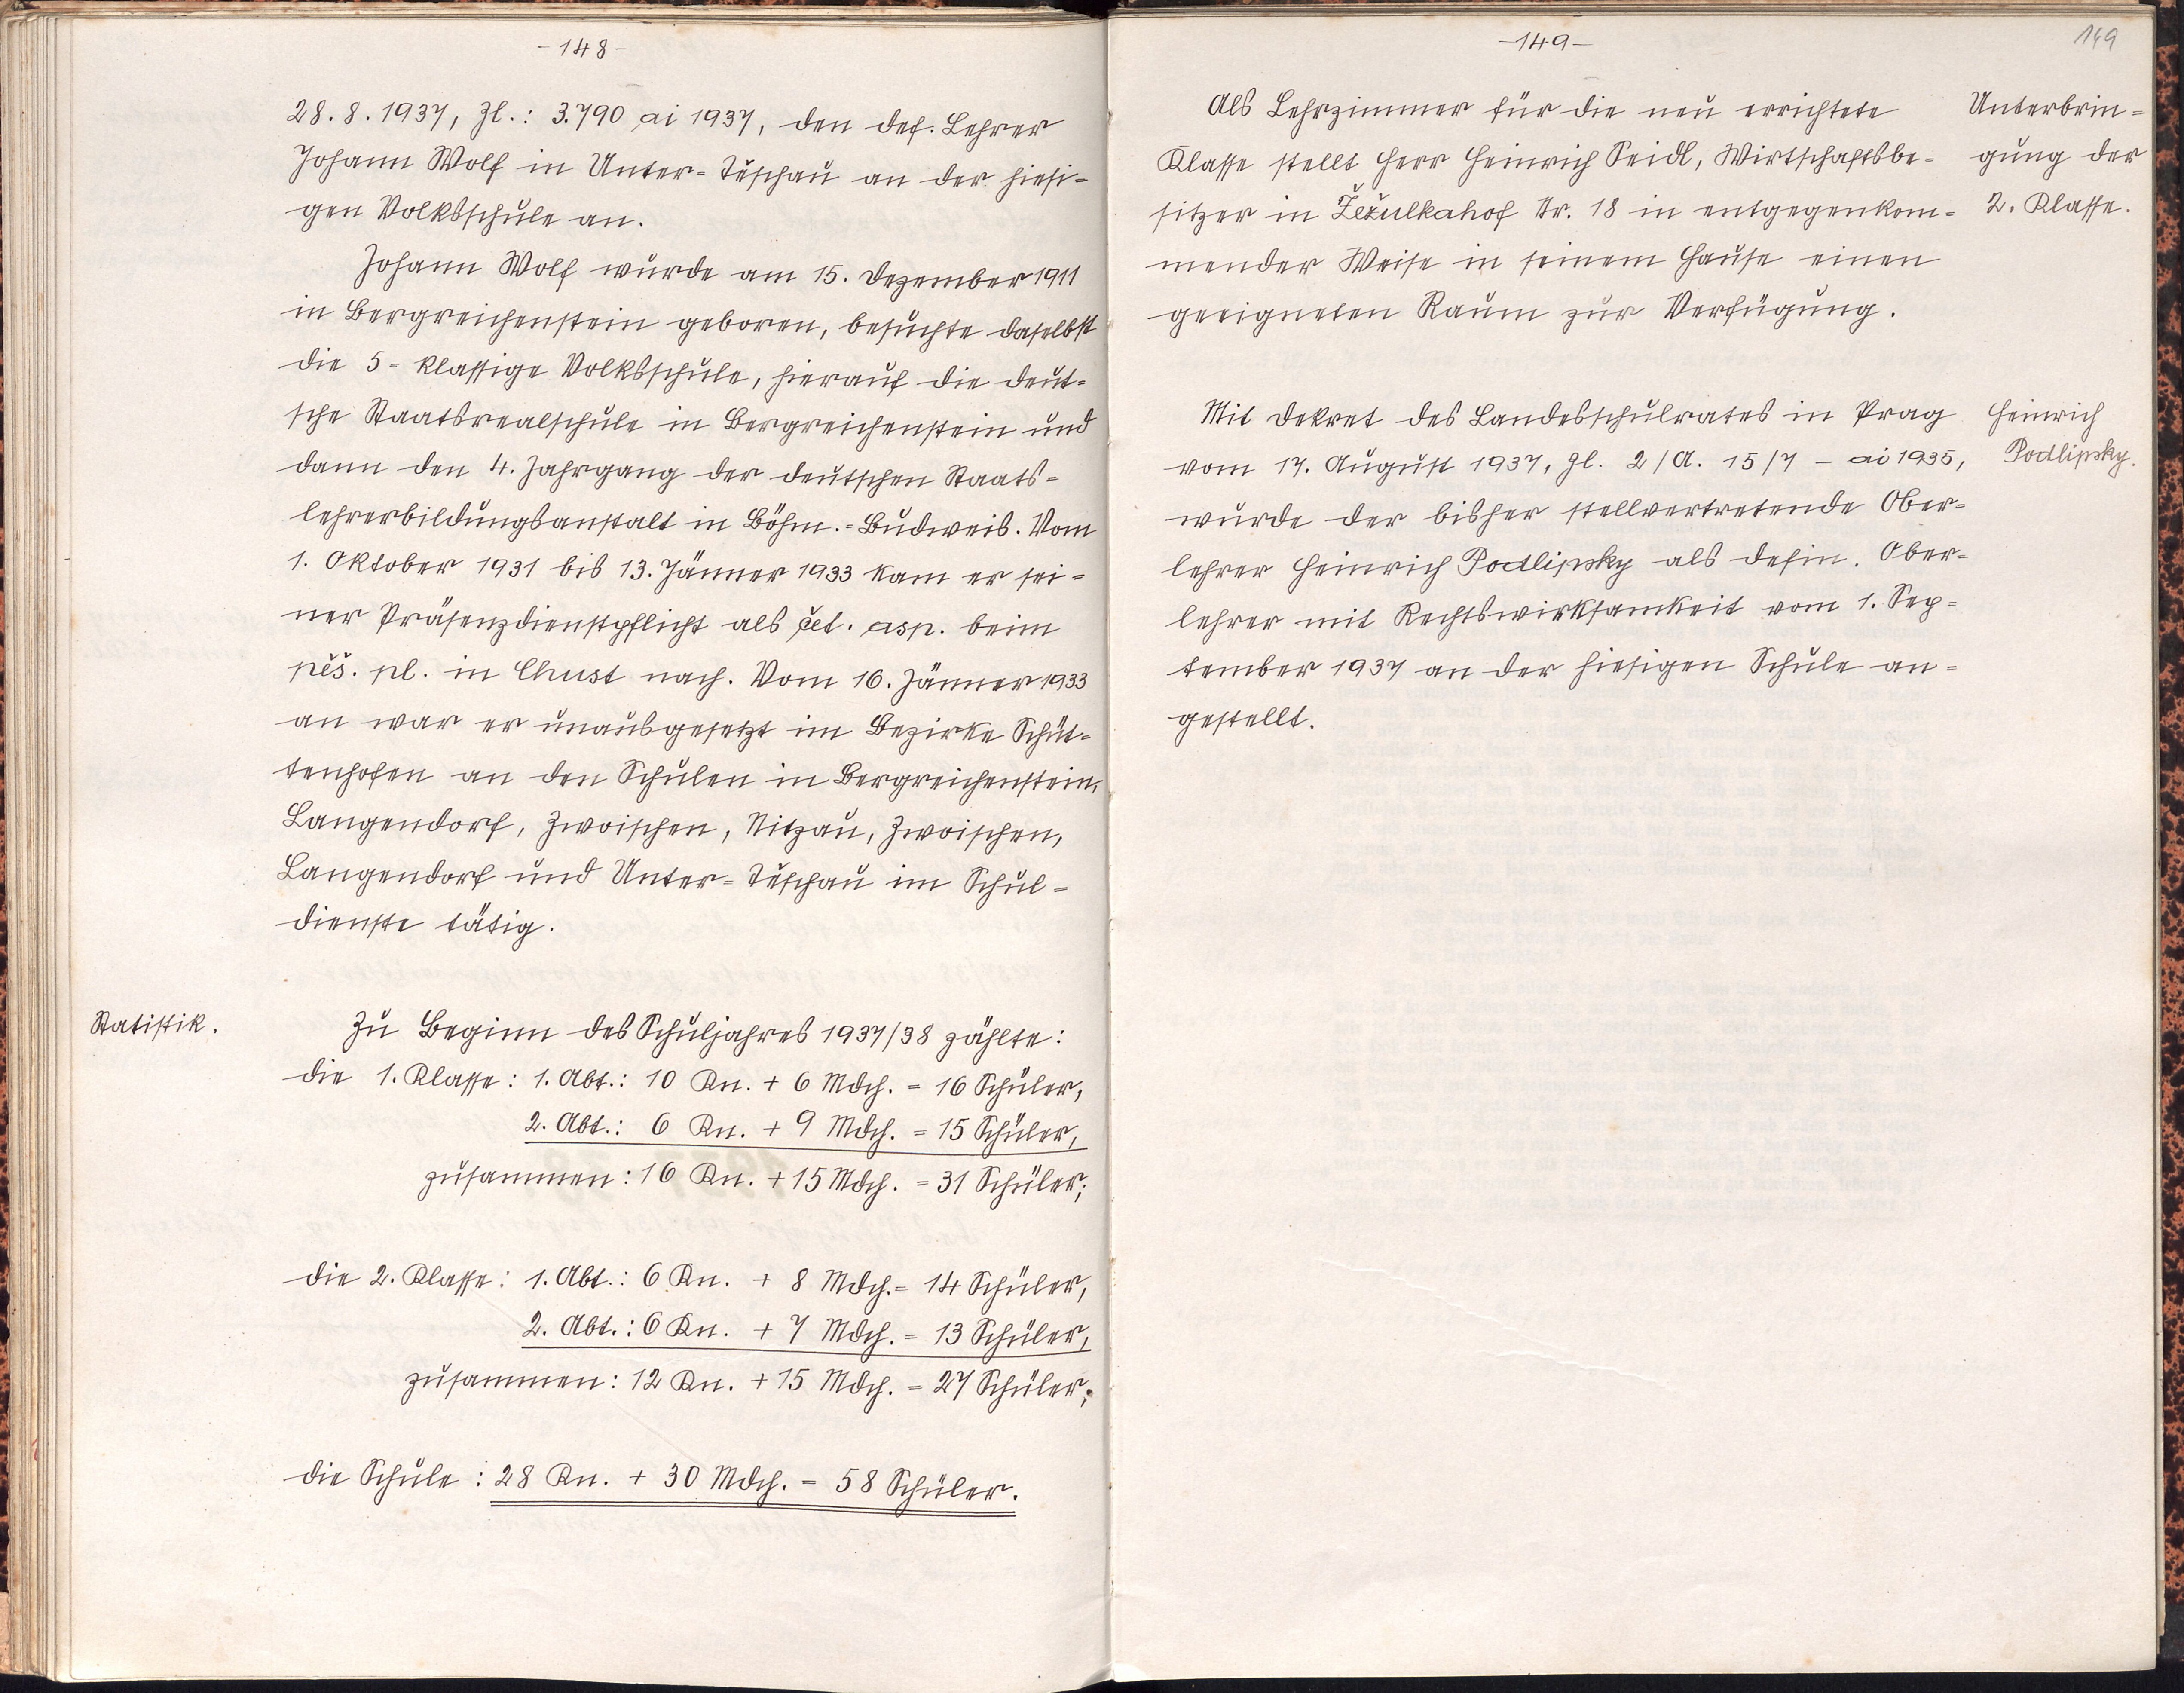 -148-
28. 8. 1937, Zl.: 3.790 ai 1937, den def. Lehrer
Johann Wolf in Unter-Teschau an der hiesi-
gen Volksschule an.
Johann Wolf wurde am 15. Dezember 1911
in Bergreichenstein geboren, besuchte daselbst
die 5-klassige Volksschule, hierauf die deut-
sche Staatsrealschule in Bergreichenstein und
dann den 4. Jahrgang der deutschen Staats-
lehrerbildungsanstalt in Böhm.-Budweis. Vom
1. Oktober 1931 bis 13. Jänner 1933 kam er sei-
ner Präsenzdienstpflicht als čet. asp. beim
pěš. pl. in Chust nach. Vom 16. Jänner 1933
an war er unausgesetzt im Bezirke Schüt-
tenhofen an den Schulen in Bergreichenstein,
Langendorf, Zwoischen, Nitzau, Zwoischen,
Langendorf und Unter-Teschau im Schul-
dienste tätig.
Statistik.
Zu Beginn des Schuljahres 1937/38 zählte:
die 1. Klasse: 1. Abt.: 10 Kn. + 6 Mdch. = 16 Schüler,
2. Abt.: 6 Kn. + 9 Mdch. = 15 Schüler,
zusammen: 16 Kn. + 15 Mdch. = 31 Schüler;
die 2. Klasse: 1. Abt.: 6 Kn. + 8 Mdch. = 14 Schüler,
2. Abt.: 6 Kn. + 7 Mdch. = 13 Schüler,
zusammen: 12 Kn. + 15 Mdch. = 27 Schüler;
die Schule: 28 Kn. + 30 Mdch. = 58 Schüler.
-149-
149
Als Lehrzimmer für die neu errichtete
Klasse stellt Herr Heinrich Seidl, Wirtschaftsbe-
sitzer in Žežulkahof Nr. 18 in entgegenkom-
mender Weise in seinem Hause einen
geeigneten Raum zur Verfügung.
Unterbrin-
gung der
2. Klasse.
Mit Dekret des Landesschulrates in Prag
vom 17. August 1937, Zl. 2/A. 15/7 - ai 1935,
wurde der bisher stellvertretende Ober-
lehrer Heinrich Podlipsky als defin. Ober-
lehrer mit Rechtswirksamkeit vom 1. Sep-
tember 1937 an der hiesigen Schule an-
gestellt.
Heinrich
Podlipsky.